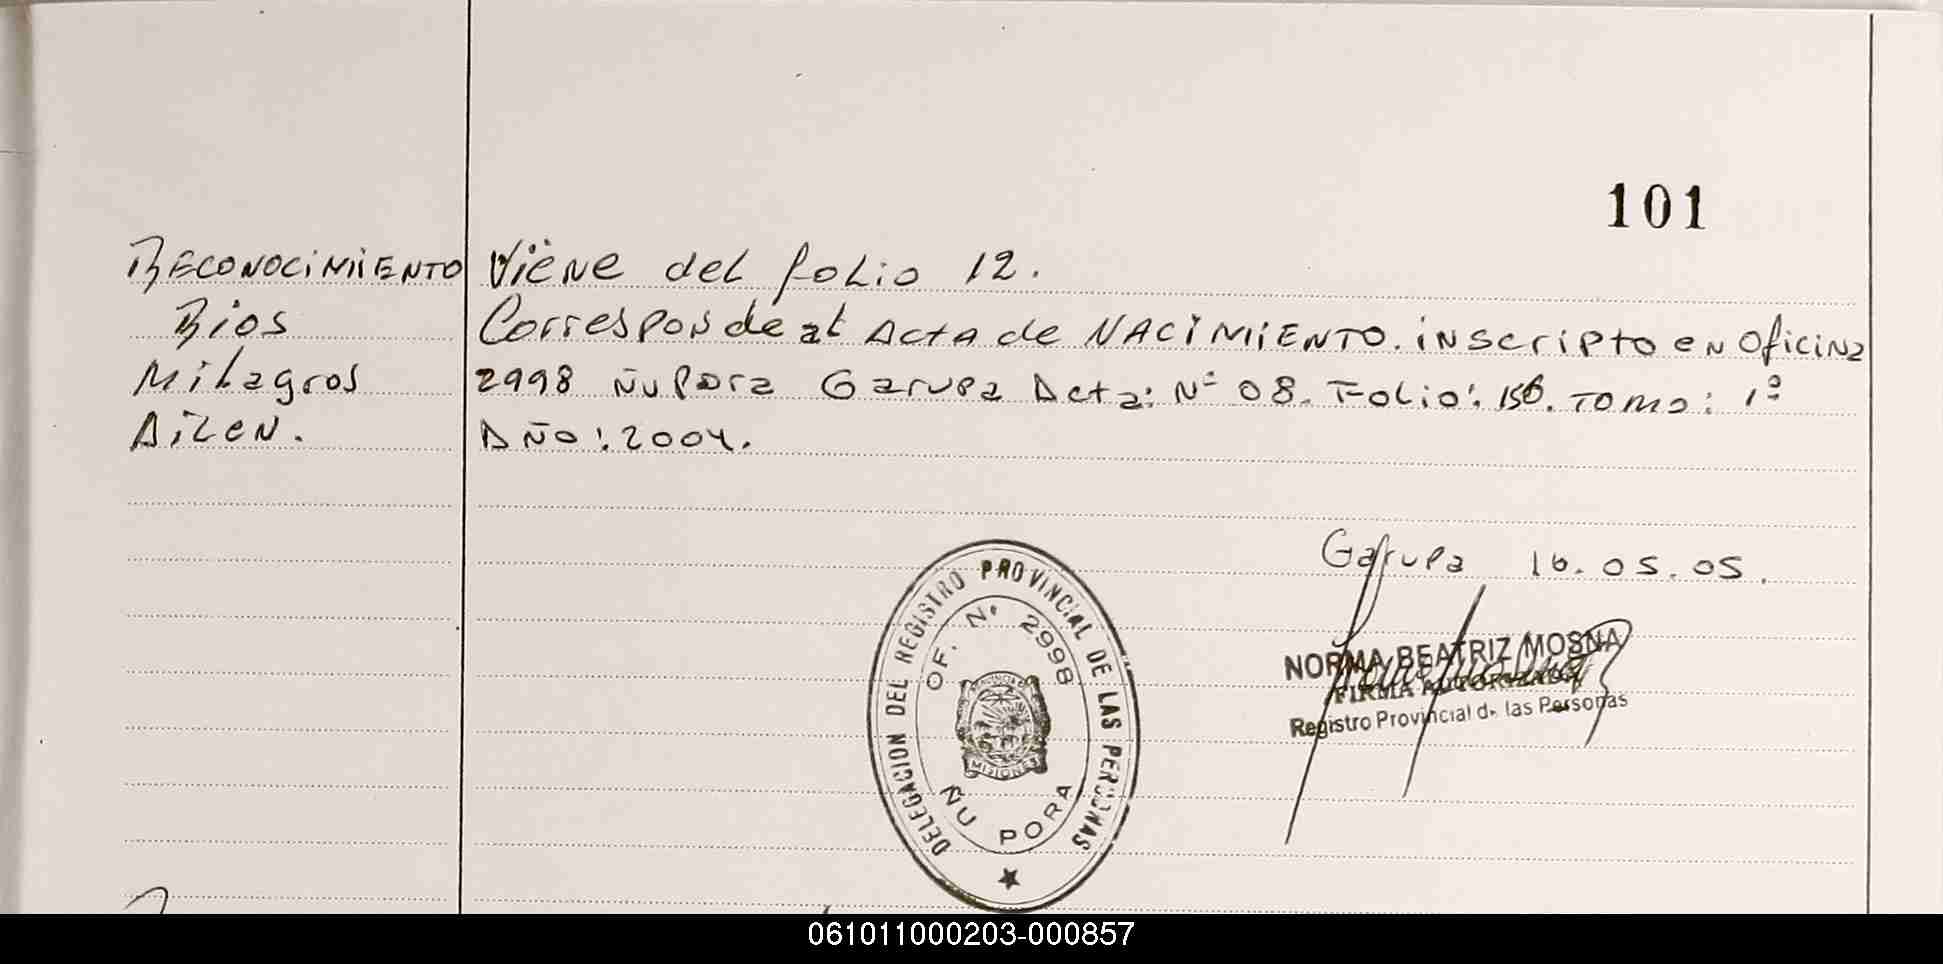 101
RECONOCIMIENTO
Rios
Milagros
Ailen.
Viene del folio 12.
Corresponde al Acta de NACIMIENTO. inscripto en Oficina
2998 Ñu Pora Garupa Acta: Nº 08. Folio: 156. TOMO: 1º
Año: 2004.
Garupa 16.05.05.
NORMA BEATRIZ MOSNA
FIRMA AUTORIZADA
Registro Provincial de las Personas
DELEGACION DEL REGISTRO PROVINCIAL DE LAS PERSONAS
OF. Nº 2998
MISIONES
ÑU PORA
061011000203-000857